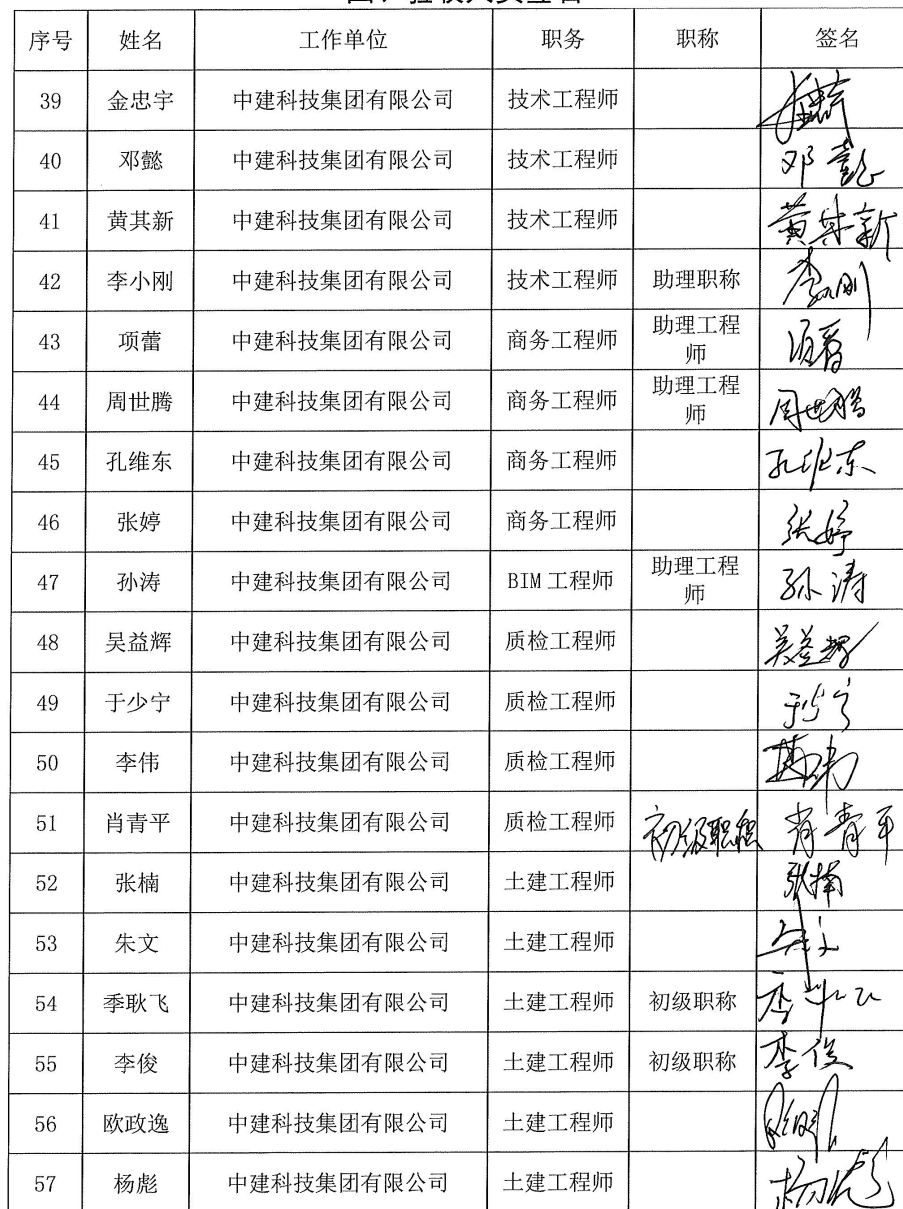 四、验收人员签名
序号 姓名 工作单位 职务 职称 签名
39 金忠宇 中建科技集团有限公司 技术工程师
40 邓懿 中建科技集团有限公司 技术工程师 邓懿
41 黄其新 中建科技集团有限公司 技术工程师 黄其新
42 李小刚 中建科技集团有限公司 技术工程师 助理职称 李小刚
43 项蕾 中建科技集团有限公司 商务工程师 助理工程
师 项蕾
44 周世腾 中建科技集团有限公司 商务工程师 助理工程
师 周世腾
45 孔维东 中建科技集团有限公司 商务工程师 孔维东
46 张婷 中建科技集团有限公司 商务工程师 张婷
47 孙涛 中建科技集团有限公司 BIM 工程师 助理工程
师 孙涛
48 吴益辉 中建科技集团有限公司 质检工程师 吴益辉
49 于少宁 中建科技集团有限公司 质检工程师 于少宁
50 李伟 中建科技集团有限公司 质检工程师
51 肖青平 中建科技集团有限公司 质检工程师 初级职称 肖青平
52 张楠 中建科技集团有限公司 土建工程师 张楠
53 朱文 中建科技集团有限公司 土建工程师 朱文
54 季耿飞 中建科技集团有限公司 土建工程师 初级职称 季耿飞
55 李俊 中建科技集团有限公司 土建工程师 初级职称 李俊
56 欧政逸 中建科技集团有限公司 土建工程师
57 杨彪 中建科技集团有限公司 土建工程师 杨彪